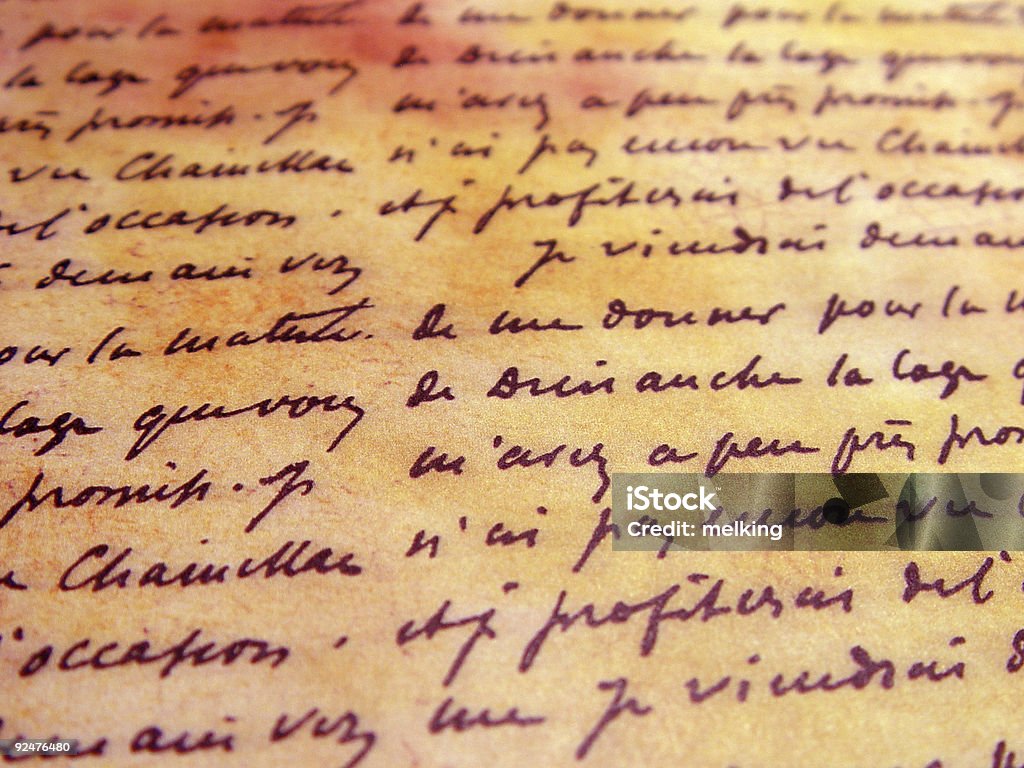 pour la matinée. de me donner pour la matinée
la loge que vous de Dimanche la loge que vous
près promise. Je m'avez à peu près promise. Je
vu Chainellae n'ai pas encore vu Chainellae
de l'occasion. et je profiterais de l'occasion
demain vez Je viendrai demain
pour la matinée. de me donner pour la
loge que vous de Dimanche la loge
promise. Je m'avez à peu près
Chainellae n'ai pas encore vu
l'occasion. et je profiterais de l'
demain vez me Je viendrai
iStock
Credit: melking
92476480